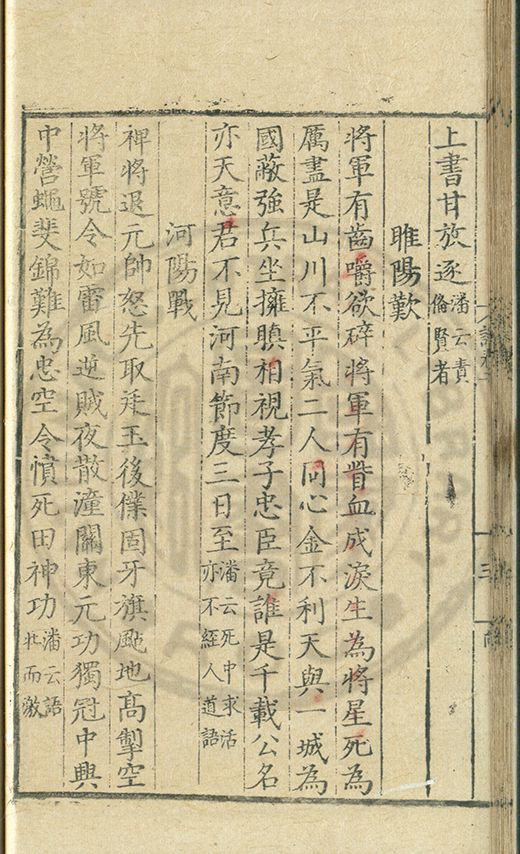 上書甘放逐潘云責備賢者
睢陽歎
將軍有齒嚼欲碎將軍有眥血成淚生為將星死為
厲盡是山川不平氣二人同心金不利天與一城為
國蔽強兵坐擁瞋相視孝子忠臣竟誰是千載公名
亦天意君不見河南節度三日至潘云死中求活亦不經人道語
河陽戰
裨將退元帥怒先取廷玉後僕固牙旗颭地高掣空
將軍號令如雷風逆賊夜散潼關東元功獨冠中興
中營蠅斐錦難為忠空令憤死田神功潘云語壯而激